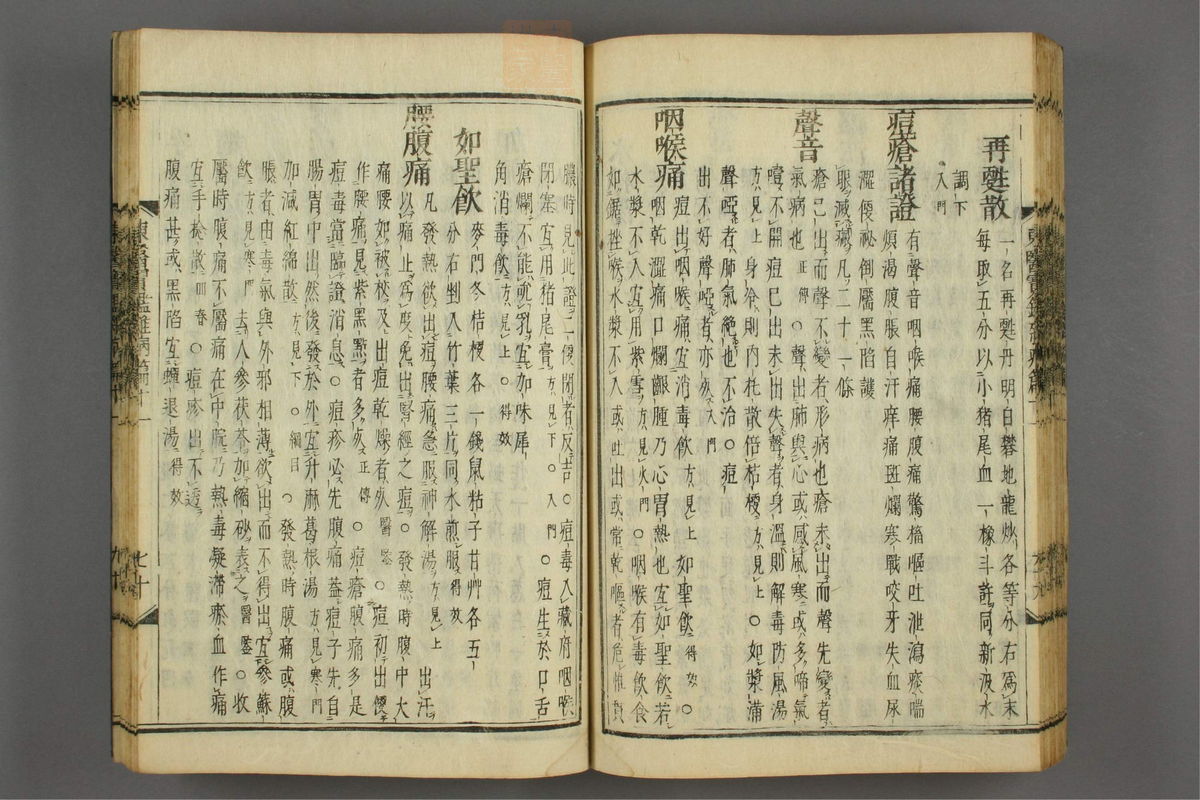 再甦散 一名再甦丹明白礬地龍炒各等分右爲末
每取五分以小猪尾血一橡斗許同新汲水
調下
入門
痘瘡諸證 有聲音咽喉痛腰腹痛驚搐嘔吐泄瀉痰喘
煩渴腹脹自汗痒痛斑爛寒戰咬牙失血尿
澁便祕倒靨黑陷護
眼滅瘢凡二十一條
聲音 瘡已出而聲不變者形病也瘡未出而聲先變者
氣病也正傳○聲出肺與心或感風寒或多啼氣
噎不開痘已出未出失聲者身溫則解毒防風湯
方見上身冷則內托散倍桔梗方見上○如漿滿
聲啞者肺氣絶也不治○痘
出不好聲啞者亦然入門
咽喉痛 痘出咽喉痛宜消毒飮方見上如聖飮得效○
咽乾澁痛口爛齦腫乃心胃熱也宜如聖飮若
水漿不入宜用紫雪方見火門○咽喉有毒飮食
如鋸挫喉水漿不入或吐出或常乾嘔者危惟貫
膿時見此證二便閉者反吉○痘毒入藏府咽喉
閉塞宜用猪尾膏方見下○入門○痘生於口舌
瘡爛不能吮乳宜加味犀
角消毒飮方見上○得效
如聖飮 麥門冬桔梗各一錢鼠粘子甘艸各五
分右剉入竹葉三片同水煎服得效
腰腹痛 凡發熱欲出痘腰痛急服神解湯方見上出汗
以痛止爲度免出腎經之痘○發熱時腹中大
痛腰如被杖及出痘乾燥者死醫鑑○痘初出便
作腰痛見紫黑點者多死正傳○痘瘡腹痛多是
痘毒當臨證消息○痘疹必先腹痛盖痘子先自
腸胃中出然後發於外宜升麻葛根湯方見寒門
加減紅綿散方見下○綱目○發熱時腹痛或腹
脹者由毒氣與外邪相薄欲出而不得出宜參蘇
飮方見寒門去人參茯苓加縮砂表之醫鑑○收
靨時腹痛不靨痛在中脘乃熱毒凝滯瘀血作痛
宜手拈散四○春○痘疹出不透
腹痛甚或黑陷宜蟬退湯得效
東醫寶鑑雜病篇卷十一
九十
七十